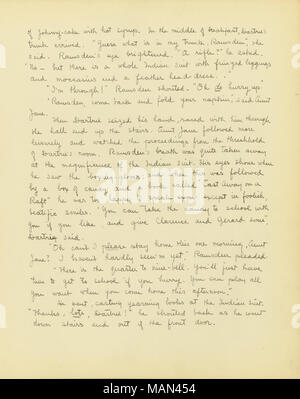 of Johnny-cake with hot syrup. In the middle of breakfast, Dartrus'
trunk arrived. "Guess what is in my trunk, Ramsden," she
said. Ramsden's eye brightened. "A rifle?" he asked.
"No - but there is a whole Indian suit with fringed leggings
and moccasins and a feather head-dress."
"I'm through!" Ramsden shouted. "Oh do hurry up."
"Ramsden, come back and fold your napkin," said Aunt
Jane.
Then Dartrus seized his hand, raced with him through
the hall and up the stairs. Aunt Jane followed more
leisurely and watched the proceedings from the threshold
of Dartrus' room. Ramsden's breath was quite taken away
at the magnificence of the Indian suit. His eyes shone when
he saw the boxing gloves; and when this was followed
by a box of candy and a book called "Cast Away on a
Raft" he was too happy to except in foolish
beatific smiles. "You can take the candy to school with
you if you like and give Clarence and Gerard some"
Dartrus said.
"Oh can't I please stay home this one morning, Aunt
Jane? I haven't hardly seen 'em yet," Ramsden pleaded.
"There is the quarter to nine bell. You'll just have
time to get to school if you hurry. You can play all
you want when you come home this afternoon."
He went, casting yearning looks at the Indian suit.
"Thanks, lots, Dartrus!" he shouted back as he went
down stairs and out of the front door.
alamy
Image ID: MAN454
www.alamy.com